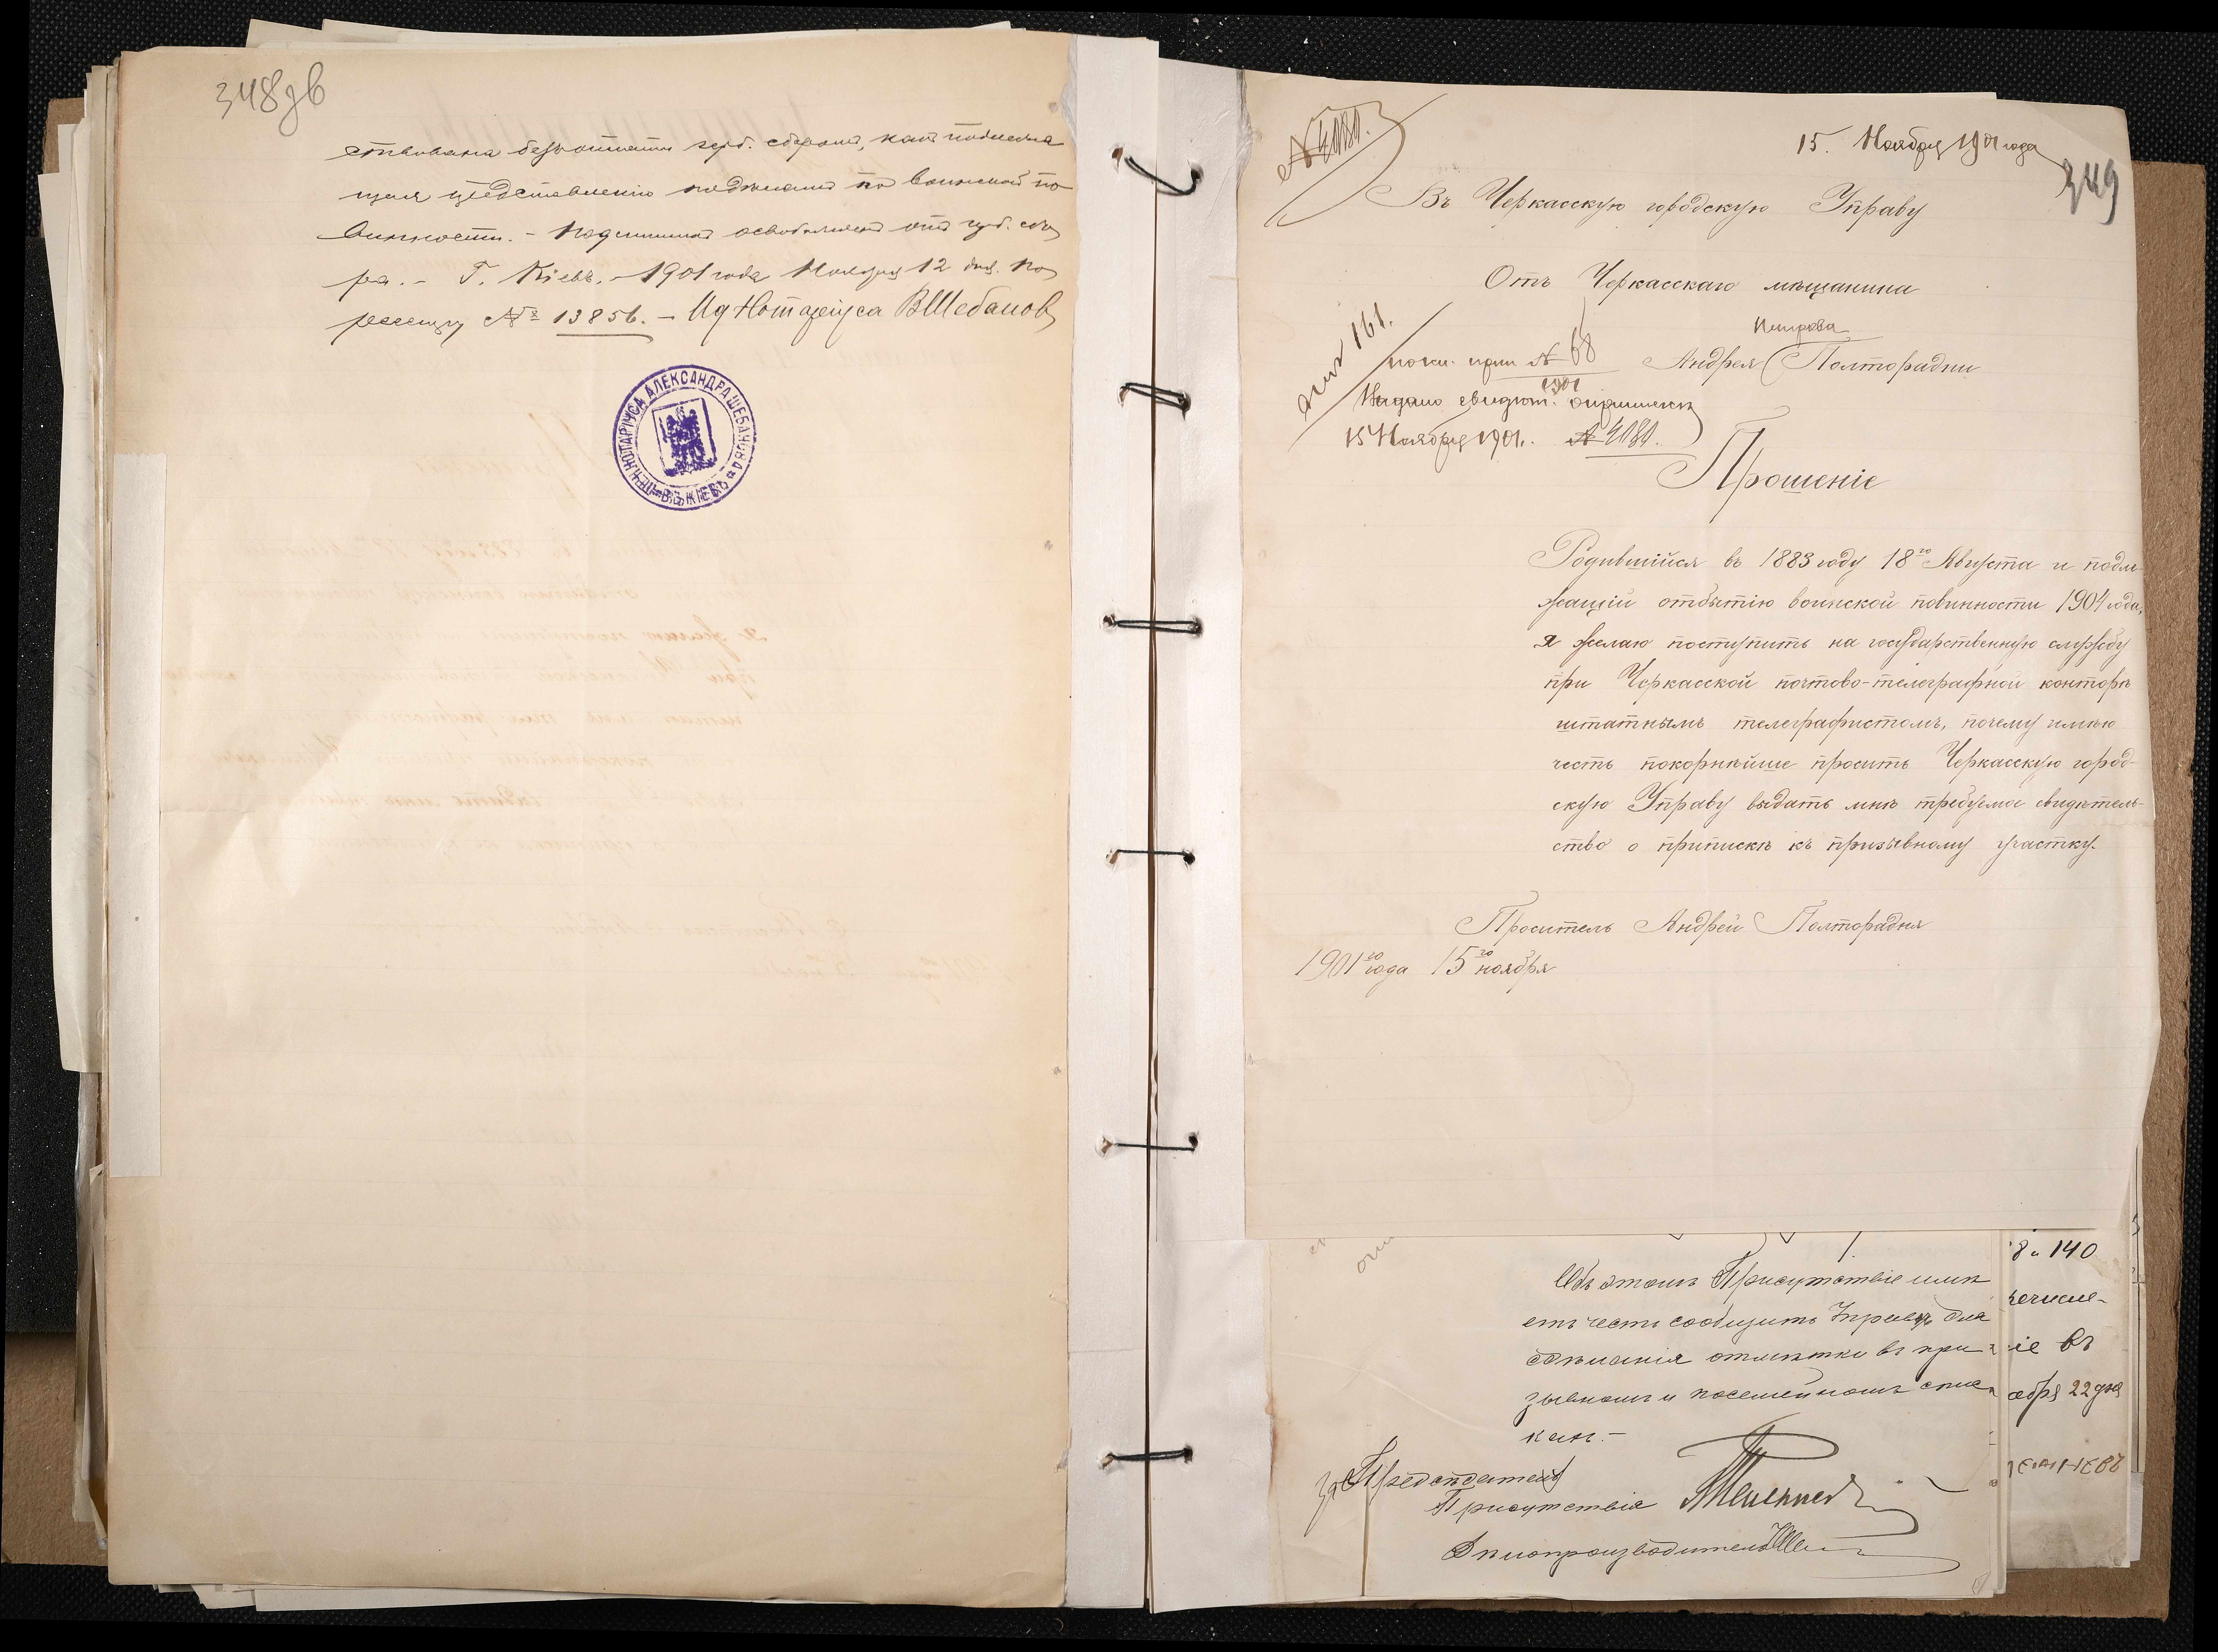 348 об
ствована безъ оплаты герб. сборомъ, какъ подлежа
щая представленію подлежащ по воинской по
винности. - Подлинная освобождена отъ герб. сбо
ра. - Г. Кіевъ. - 1901 года Ноября 12 дня. По
реестру № 13856. - Ид Нотаріуса ВШебановъ
НОТАРІУСА АЛЕКСАНДРА ШЕБАНОВА ВЪ КІЕВѢ
№ 4080.
15. Ноября 1901 года
349
Въ Черкасскую городскую Управу
Отъ Черкасскаго мѣщанина
Петрова
Андрея Полторадни
161.
№ 68
1901
Выдано свидѣт. о припискѣ
15 Ноября 1901. № 4080.
Прошеніе
Родившійся въ 1883 году 18го Августа и подле-
жащій отбытію воинской повинности 1904 года,
я желаю поступить на государственную службу
при Черкасской почтово-телеграфной конторѣ
штатнымъ телеграфистомъ, почему имѣю
честь покорнѣйше просить Черкасскую город-
скую Управу выдать мнѣ требуемое свидѣтель-
ство о припискѣ къ призывному участку.
Проситель Андрей Полторадня
1901го года 15го ноября
Объ этомъ Присутствіе имѣ
етъ честь сообщить Управѣ для
сдѣланія отмѣтки въ при-
зывномъ и посемейномъ спис
кахъ.-
За Предсѣдателя
Присутствія
Дѣлопроизводитель
8 и 140
іе въ
ября 22 дня